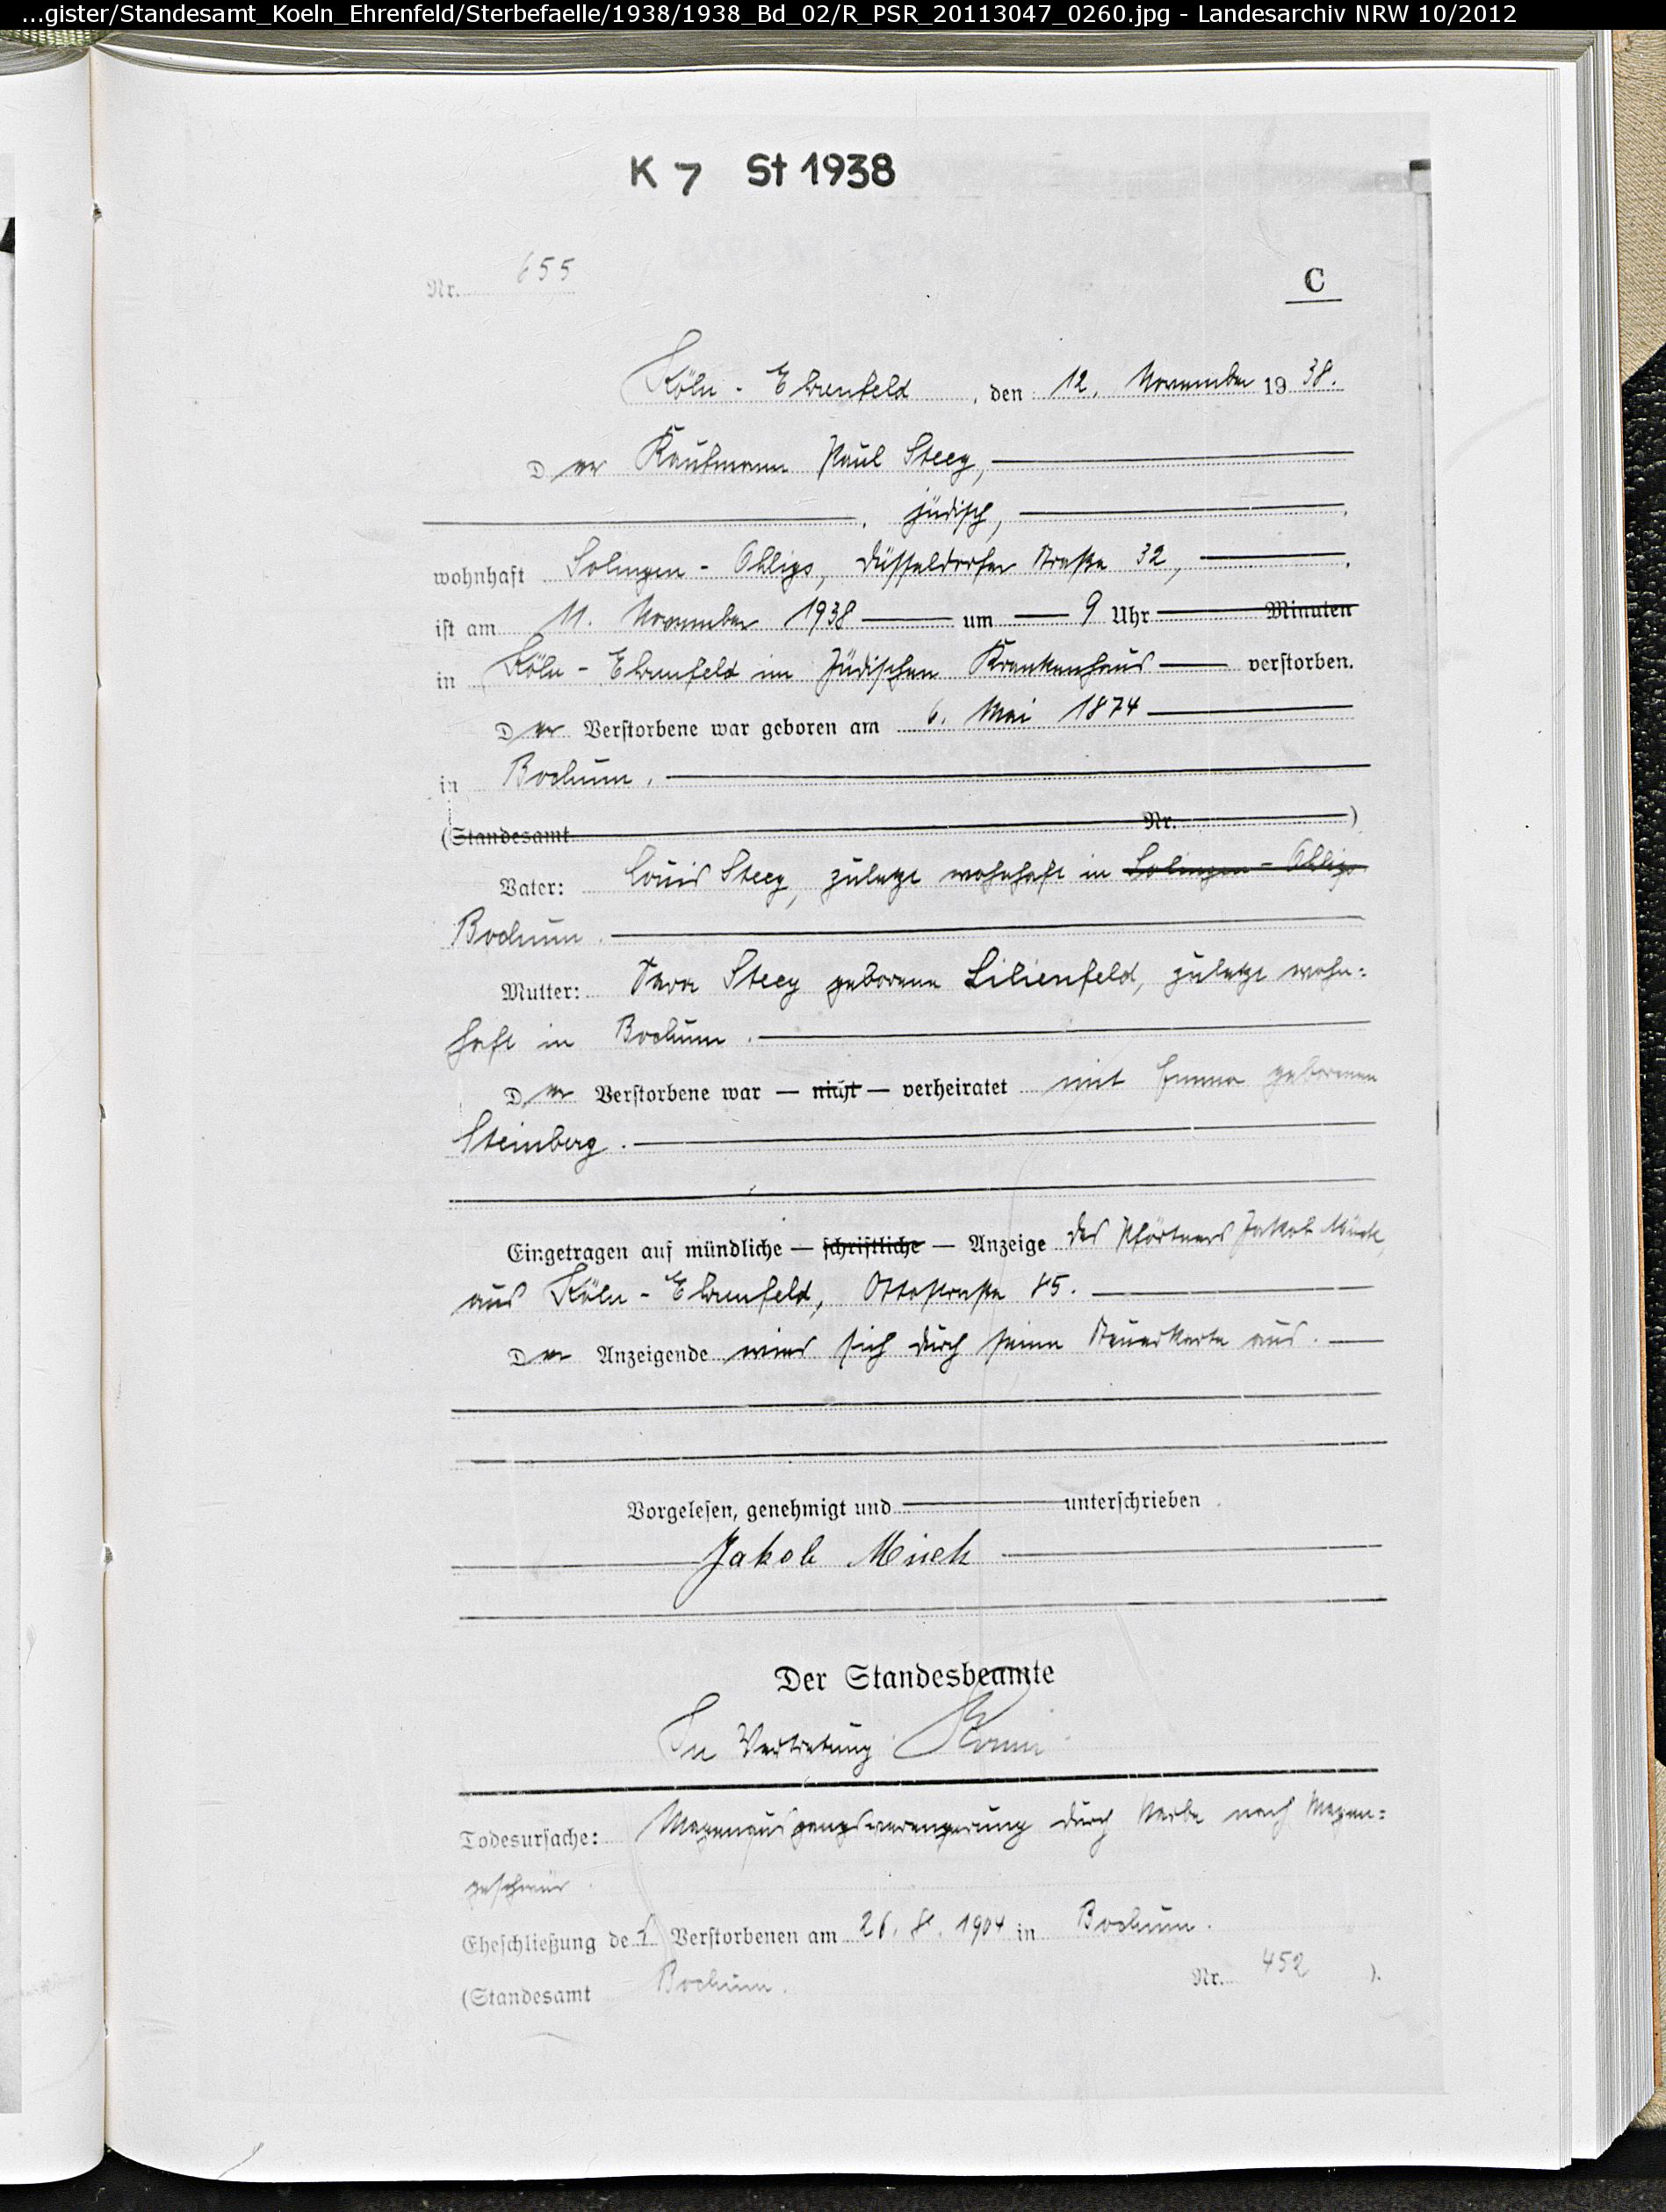 ...gister/Standesamt_Koeln_Ehrenfeld/Sterbefaelle/1938/1938_Bd_02/R_PSR_20113047_0260.jpg - Landesarchiv NRW 10/2012
K 7 St 1938
Nr. 655
C
Köln - Ehrenfeld, den 12. November 1938.
Der Kaufmann Paul Steeg,
, jüdisch,
wohnhaft Solingen - Ohligs, Düsseldorfer Straße 32,
ist am 11. November 1938 um 9 Uhr Minuten
in Köln - Ehrenfeld im Jüdischen Krankenhaus verstorben.
Der Verstorbene war geboren am 6. Mai 1874
in Bochum.
(Standesamt Nr. )
Vater: Louis Steeg, zuletzt wohnhaft in Solingen - Ohligs
Bochum.
Mutter: Sara Steeg geborene Lilienfeld, zuletzt wohn=
haft in Bochum.
Der Verstorbene war — nicht — verheiratet mit Emma geborenen
Steinberg.
Eingetragen auf mündliche — schriftliche — Anzeige des Pförtners Jakob Mück,
aus Köln - Ehrenfeld, Ottostraße 85.
Der Anzeigende wies sich durch seine Steuerkarte aus.
Vorgelesen, genehmigt und unterschrieben
Jakob Mück
Der Standesbeamte
In Vertretung
Todesursache: Magenausgangsverengerung durch Narbe nach Magen=
geschwür.
Eheschließung des Verstorbenen am 26. 8. 1904 in Bochum.
(Standesamt Bochum. Nr. 452 ).